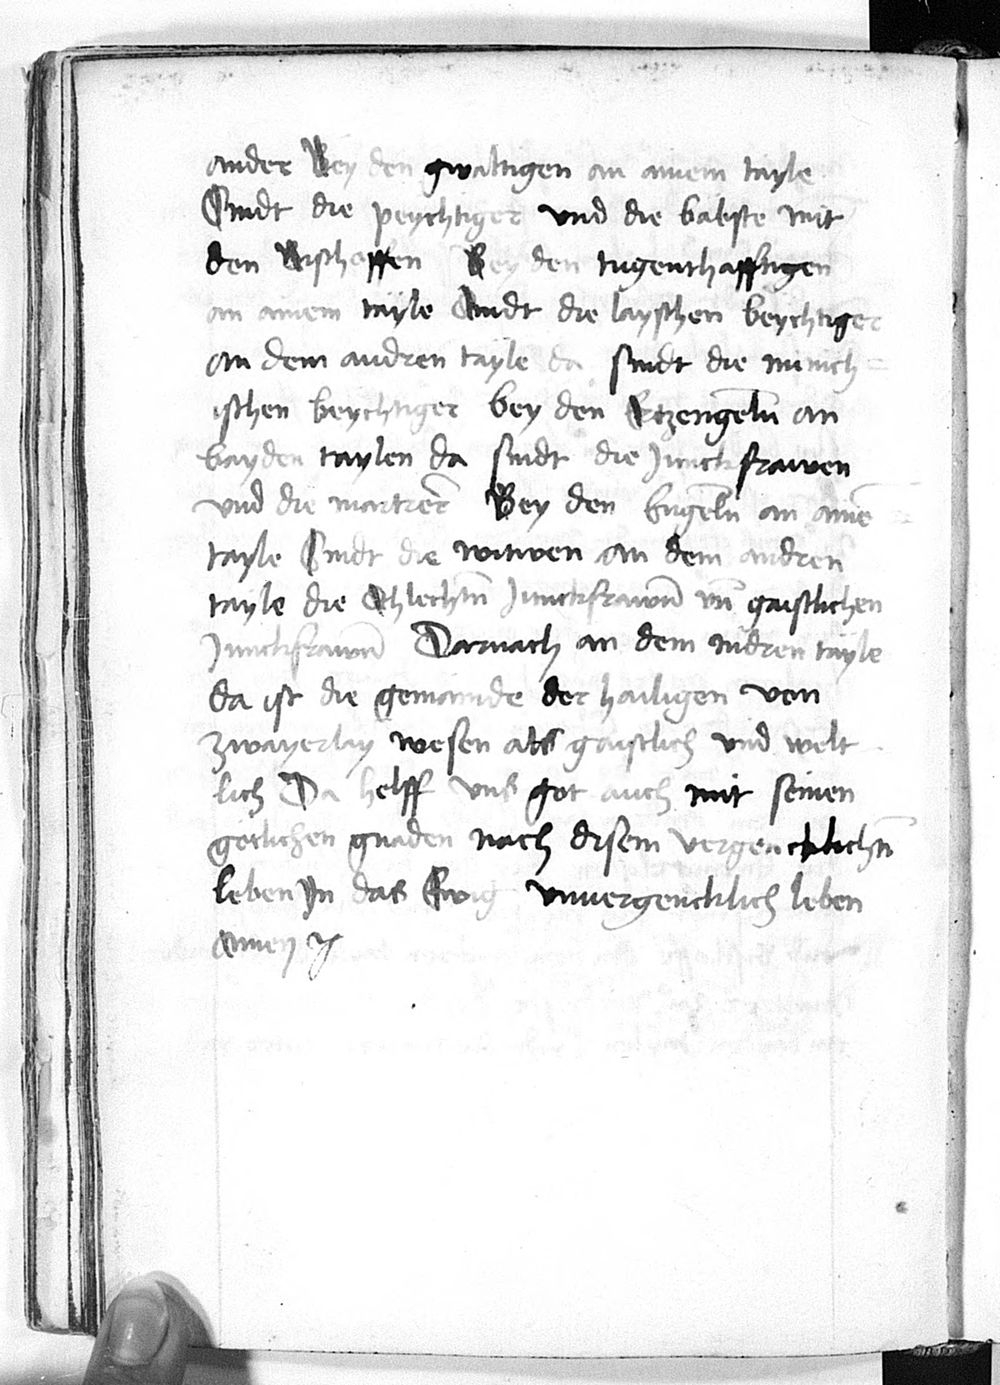 ander Bey den gwaltigen an ainem tayle
Sindt die peychtiger vnd die bäbste mit
den Bischoffen Bey den tugenthafftigen
an ainem tayle Sindt die layschen beychtiger
an dem andren tayle da sindt die münich=
ischen beychtiger bey den Ertzengeln̄ an
bayden taylen da sindt die Junckfrawen
vnd die martrer̄ Bey den Engeln̄ an aine͞
tayle Sindt die witwen an dem andren
tayle die Schlechtn̄ Junckfrawn̄ vn̄ gaistlichen
Junckfrawn̄ Darnach an dem nidren tayle
da ist die gemainde der hailigen von
zwayerlay wesen als gaistlich vnd welt
lich Da helff vnß got auch mit seinen
götlichen gnaden nach disem vergencklichn̄
leben Jn das Ewig vnuergencklich leben
Amen